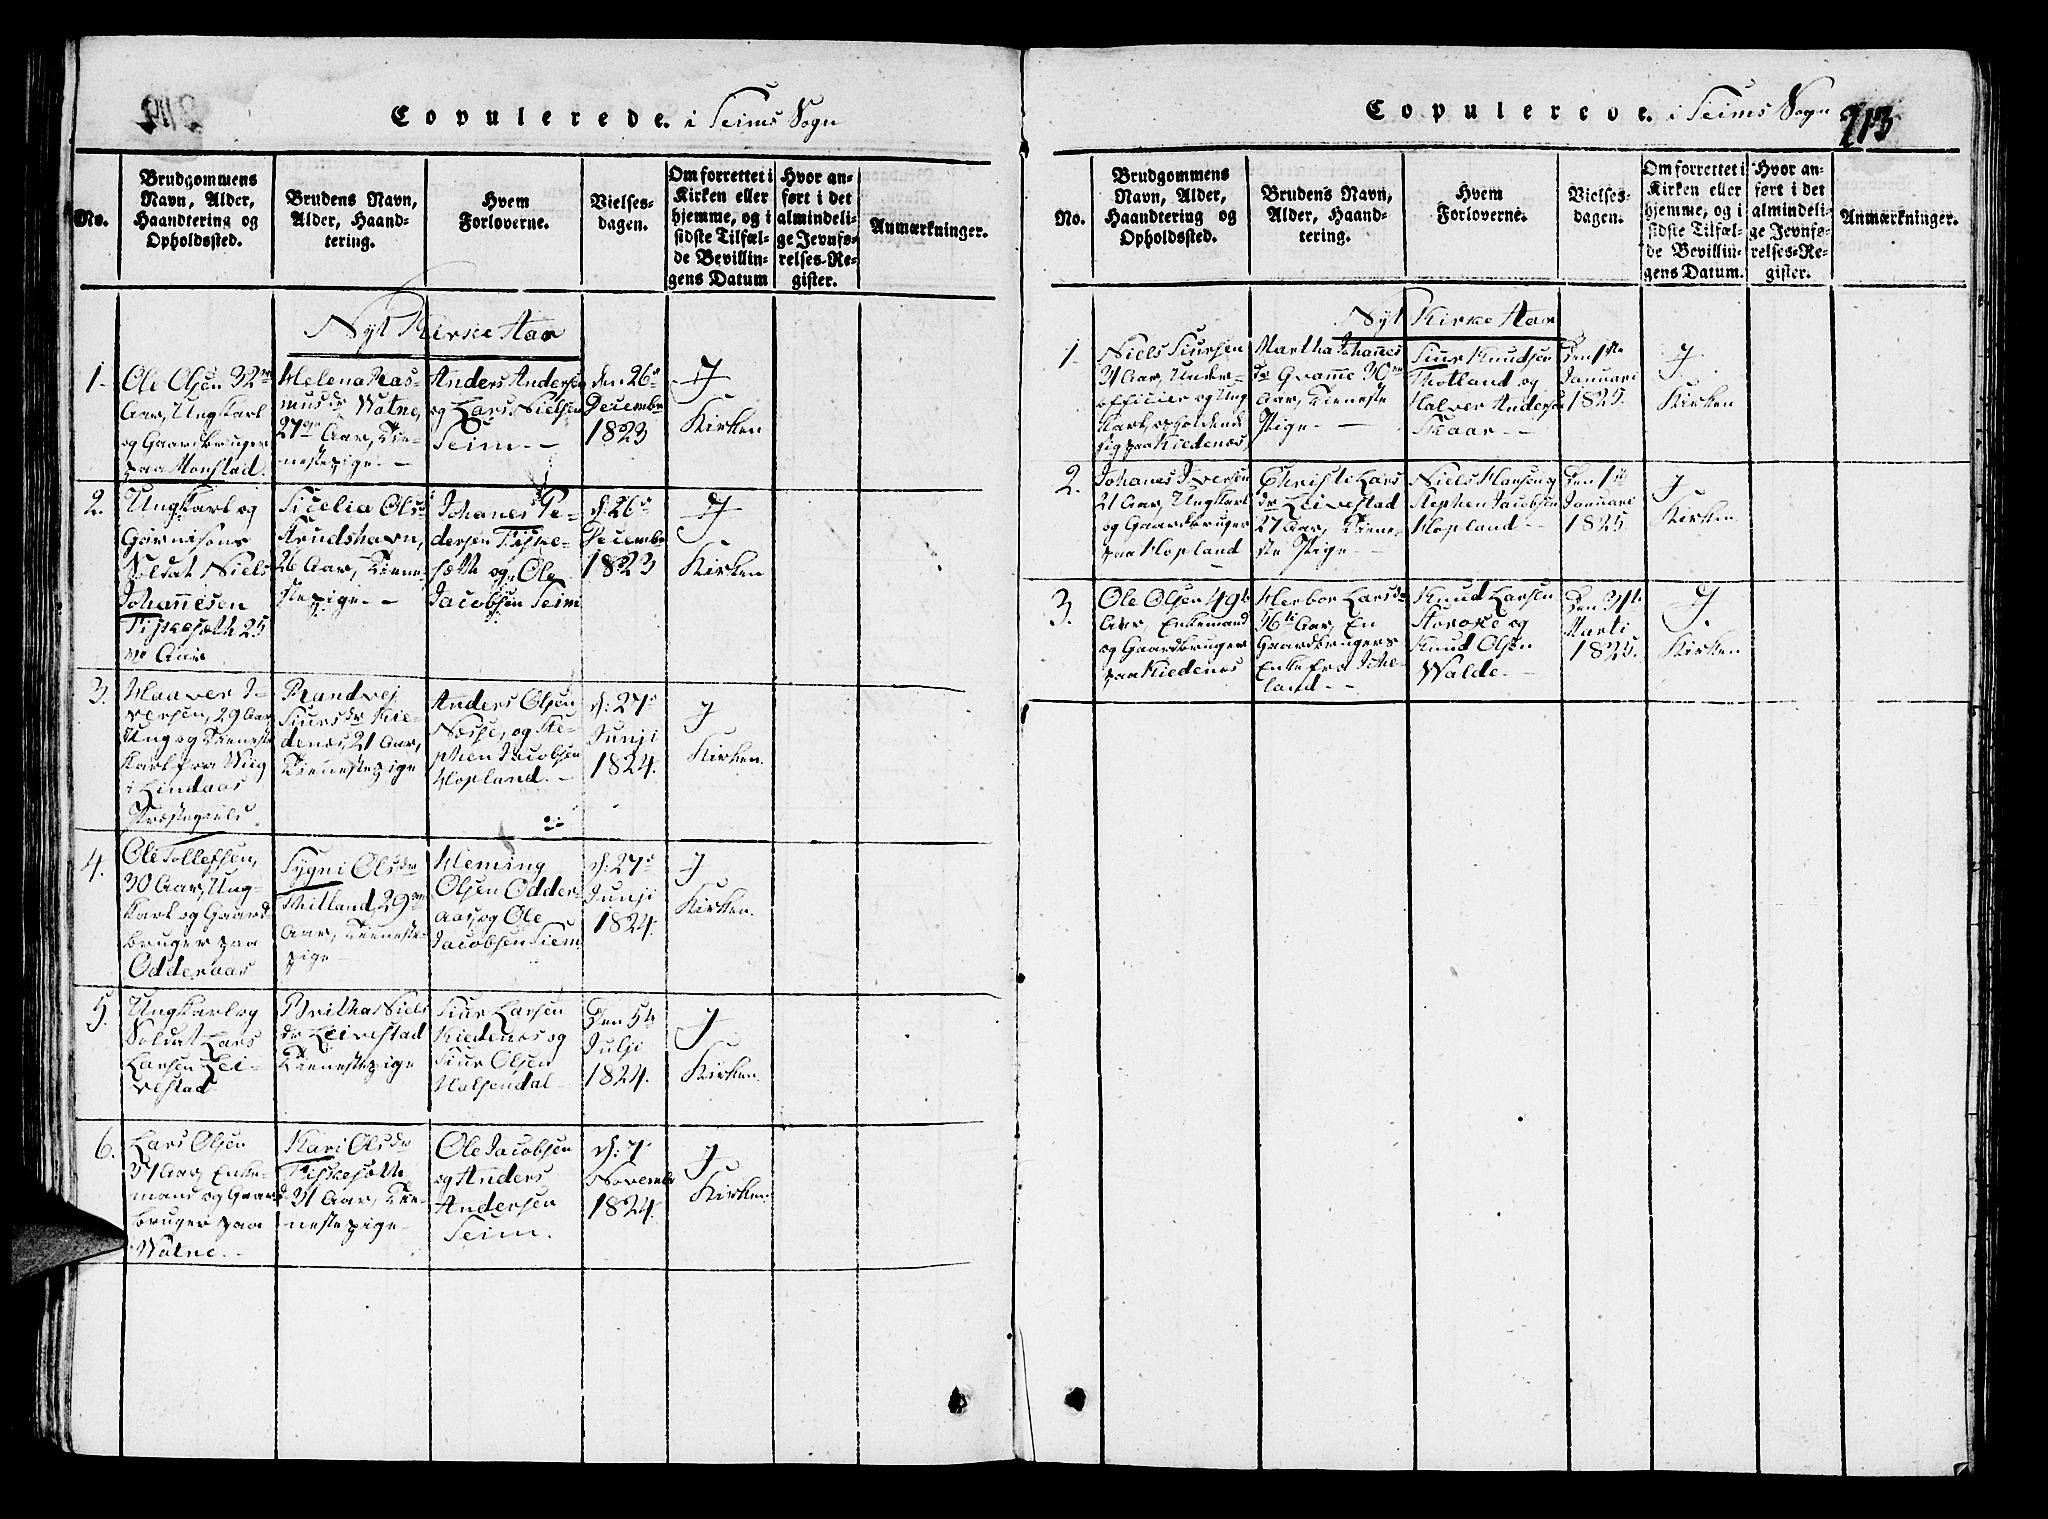 Copulerede. i Seims Sogn
No.
Brudgommens
Navn, Alder,
Haandtering og
Opholdssted.
Brudens Navn,
Alder, Haand-
tering.
Hvem
Forloverne.
Vielses-
dagen.
Om forrettet i
Kirken eller
hjemme, og i
sidste Tilfæl-
de Bevillin-
gens Datum
Hvor an-
ført i det
almindeli-
ge Jevnfø-
relses-Re-
gister.
Anmærkninger.
Nyt Kirke Aar
1.
Ole Olsen 32
Aar, Ungkarl
og Gaardbruger
paa Monstad.
Helena Ras-
mus dr Watne,
27 Aar, Tie-
nestepige. -
Anders Andersen
og Lars Nielsen
Seim. -
den 26
Decembr
1823
J
Kirken
2.
Ungkarl og
Garnisons
Soldat Niels
Johannesen
Fiskesæth 25
Aar
Sicelia Ols dr
Arndshavn,
26 Aar, Tiene-
stepige. -
Johanes Pe-
dersen Fiske-
sætte og Ole
Jacobsen Seim
d: 26
Decembr
1823
J
Kirken
3.
Haaver I-
versen, 29 Aar,
Ung og Tieneste
karl fra Wiig
i Lindaas
Præstegield.
Randvej
Siurs dr Kie-
denæs, 21 Aar,
Tienestepige
Anders Olsen
Næsse, og Ste-
phen Jacobsen
Hopland. -
d: 27
Junji
1824.
J
Kirken.
4.
Ole Tollefsen,
30 Aar, Ung-
karl og Gaard
bruger paa
Odderaas
Sygni Ols dr
Hilland, 29
Aar, Tieneste-
pige -
Heming
Olsen Odder-
aas, og Ole
Jacobsen Siem
d: 27
Junji
1824.
J
Kirken.
5.
Ungkarl og
Soldat Lars
Larsen Lei-
vestad
Britha Niels
dr Leivestad
Tienestepige
Siur Larsen
Kiedenæs og
Siur Olsen
Halsendal -
Den 5te
Julji
1824.
J
Kirken.
6.
Lars Olsen
37 Aar, Enke-
mand og Gaard
bruger paa
Watne. -
Kari Ols dr
Fiskesætte
31 Aar, Tie-
nestepige -
Ole Jacobsen
og Anders
Andersen
Seim.
d: 7
Novembr
1824.
J
Kirken.
Copulerede. i Seims Sogn
213
No.
Brudgommens
Navn, Alder,
Haandtering og
Opholdssted.
Brudens Navn,
Alder, Haand-
tering.
Hvem
Forloverne.
Vielses-
dagen.
Om forrettet i
Kirken eller
hjemme, og i
sidste Tilfæl-
de Bevillin-
gens Datum.
Hvor an-
ført i det
almindeli-
ge Jevnfø-
relses-Re-
gister.
Anmærkninger.
Nyt Kirke Aar
1.
Niels Siursen
31 Aar, Under-
officier og Ung
karl, opholdende
sig paa Kiedenæs,
Martha Johannes
dr Qvamme 30
Aar, Tieneste
Pige - -
Siur Knudsen
Thotland og
Halver Andersen
Skaar - -
Den 1ste
Januari
1825.
J
Kirken
2.
Johanes Iversen
21 Aar, Ungkarl
og Gaardbruger
paa Hopland
Christe Lars
dr Leivestad
27 Aar, Tiene-
ste Pige - -
Niels Hansen og
Stephen Jacobsen
Hopland -
Den 1ste
Januari
1825.
J
Kirken.
3.
Ole Olsen 49
Aar, Enkemand
og Gaardbruger
paa Kiedenæs
Herbor Lars dr
36 Aar, En
Gaardbrugers
Enke fra Ichе-
land - -
Knud Larsen
Storoke og
Knud Olsen
Walde. -
Den 31te
Marti
1825.
J
Kirken